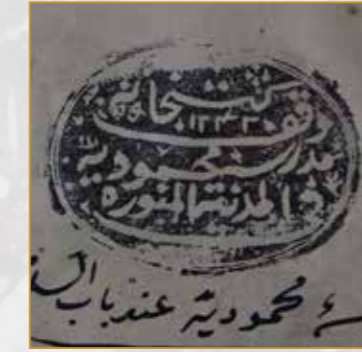 وقف كتبخانه
١٢٤٣
مدرسه محموديه
في المدينة المنوره
محموديه عند باب